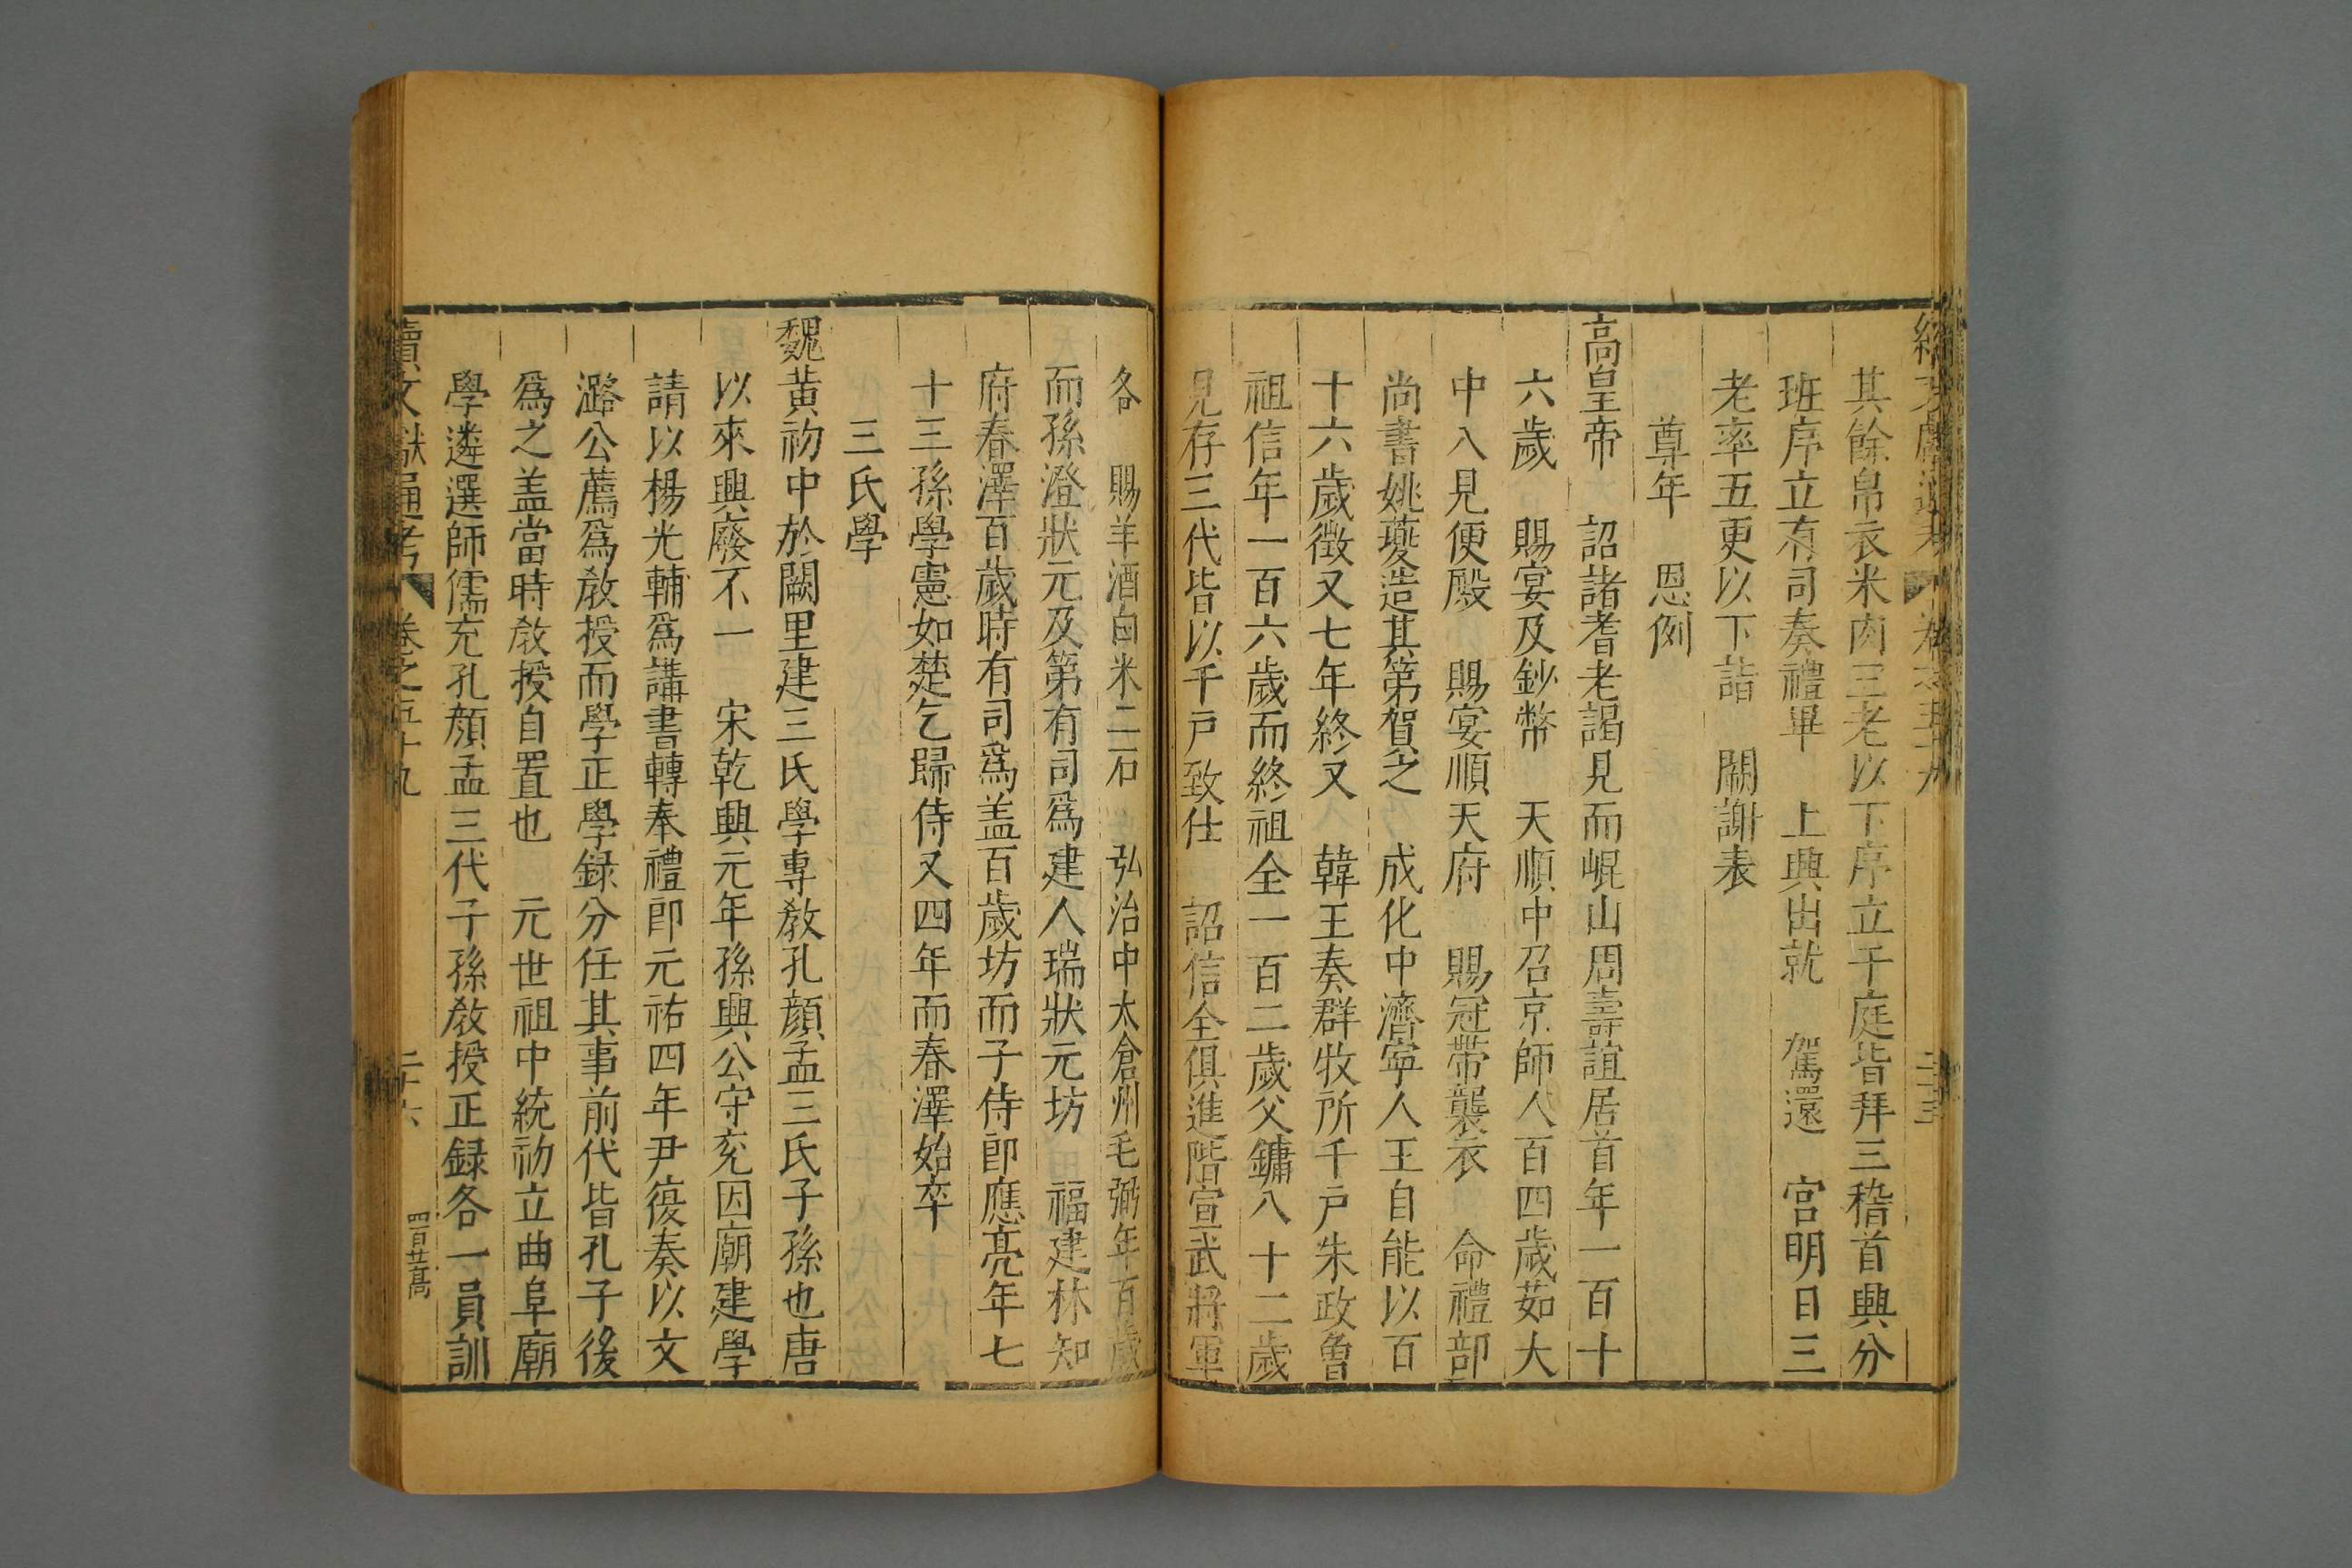 其餘帛衣米肉三老以下序立于庭皆拜三稽首興分
班序立有司奏禮畢 上興出就 駕還 宮明日三
老率五更以下詣 闕謝表
尊年 恩例
高皇帝 詔諸耆老謁見而崐山周壽誼居首年一百十
六歲 賜宴及鈔幣 天順中召京師人百四歲茹大
中入見便殿 賜宴順天府 賜冠帶襲衣 命禮部
尚書姚夔造其第賀之 成化中濟寧人王自能以百
十六歲徵又七年終又 韓王奏群牧所千戶朱政魯
祖信年一百六歲而終祖全一百二歲父鏞八十二歲
見存三代皆以千戶致仕 詔信全俱進階宣武將軍
各 賜羊酒白米二石 弘治中太倉州毛弼年百歲
而孫澄狀元及第有司爲建人瑞狀元坊 福建林知
府春澤百歲時有司爲盖百歲坊而子侍郎應亮年七
十三孫學憲如楚乞歸侍又四年而春澤始卒
三氏學
魏黃初中於闕里建三氏學專教孔顏孟三氏子孫也唐
以來興廢不一 宋乾興元年孫興公守兖因廟建學
請以楊光輔爲講書轉奉禮郎元祐四年尹復奏以文
潞公薦爲教授而學正學録分任其事前代皆孔子後
爲之盖當時教授自置也 元世祖中統初立曲阜廟
學遴選師儒充孔顏孟三代子孫教授正録各一員訓
續文獻通考 卷之五十九 二十六 四百廿高